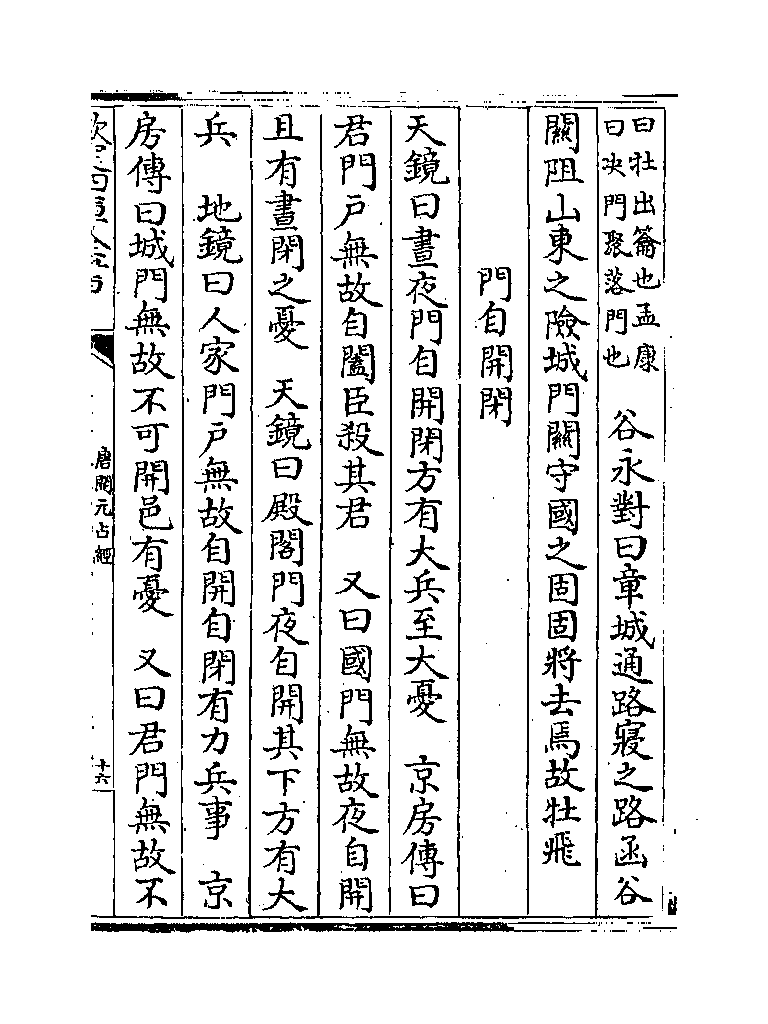 曰牡出籥也孟康
曰决門聚落門也
谷永對曰章城通路寢之路函谷
關阻山東之險城門關守國之固固將去焉故牡飛
門自開閉
天鏡曰晝夜門自開閉方有大兵至大憂　京房傳曰
君門戸無故自闔臣殺其君　又曰國門無故夜自開
且有晝閉之憂　天鏡曰殿閣門夜自開其下方有大
兵　地鏡曰人家門戸無故自開自閉有力兵事　京
房傳曰城門無故不可開邑有憂　又曰君門無故不
唐開元占經
十六